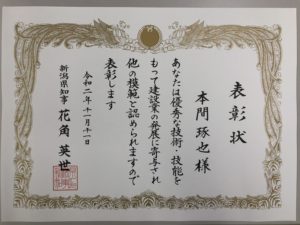 表彰状
本間 琢也 様
あなたは優秀な技術・技能を
もって建設業の発展に寄与され
他の模範と認められますので
表彰します
令和二年十一月十一日
新潟県知事 花角 英世